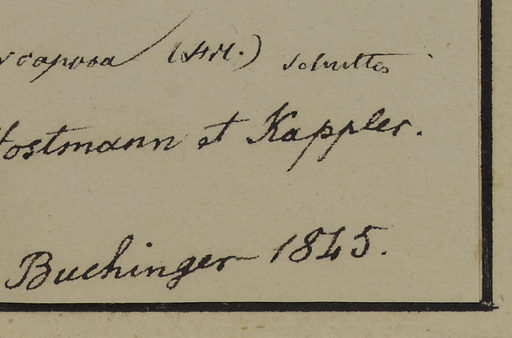 scaposa (HK.) Schultes
Hostmann et Kappler.
Buchinger 1845.